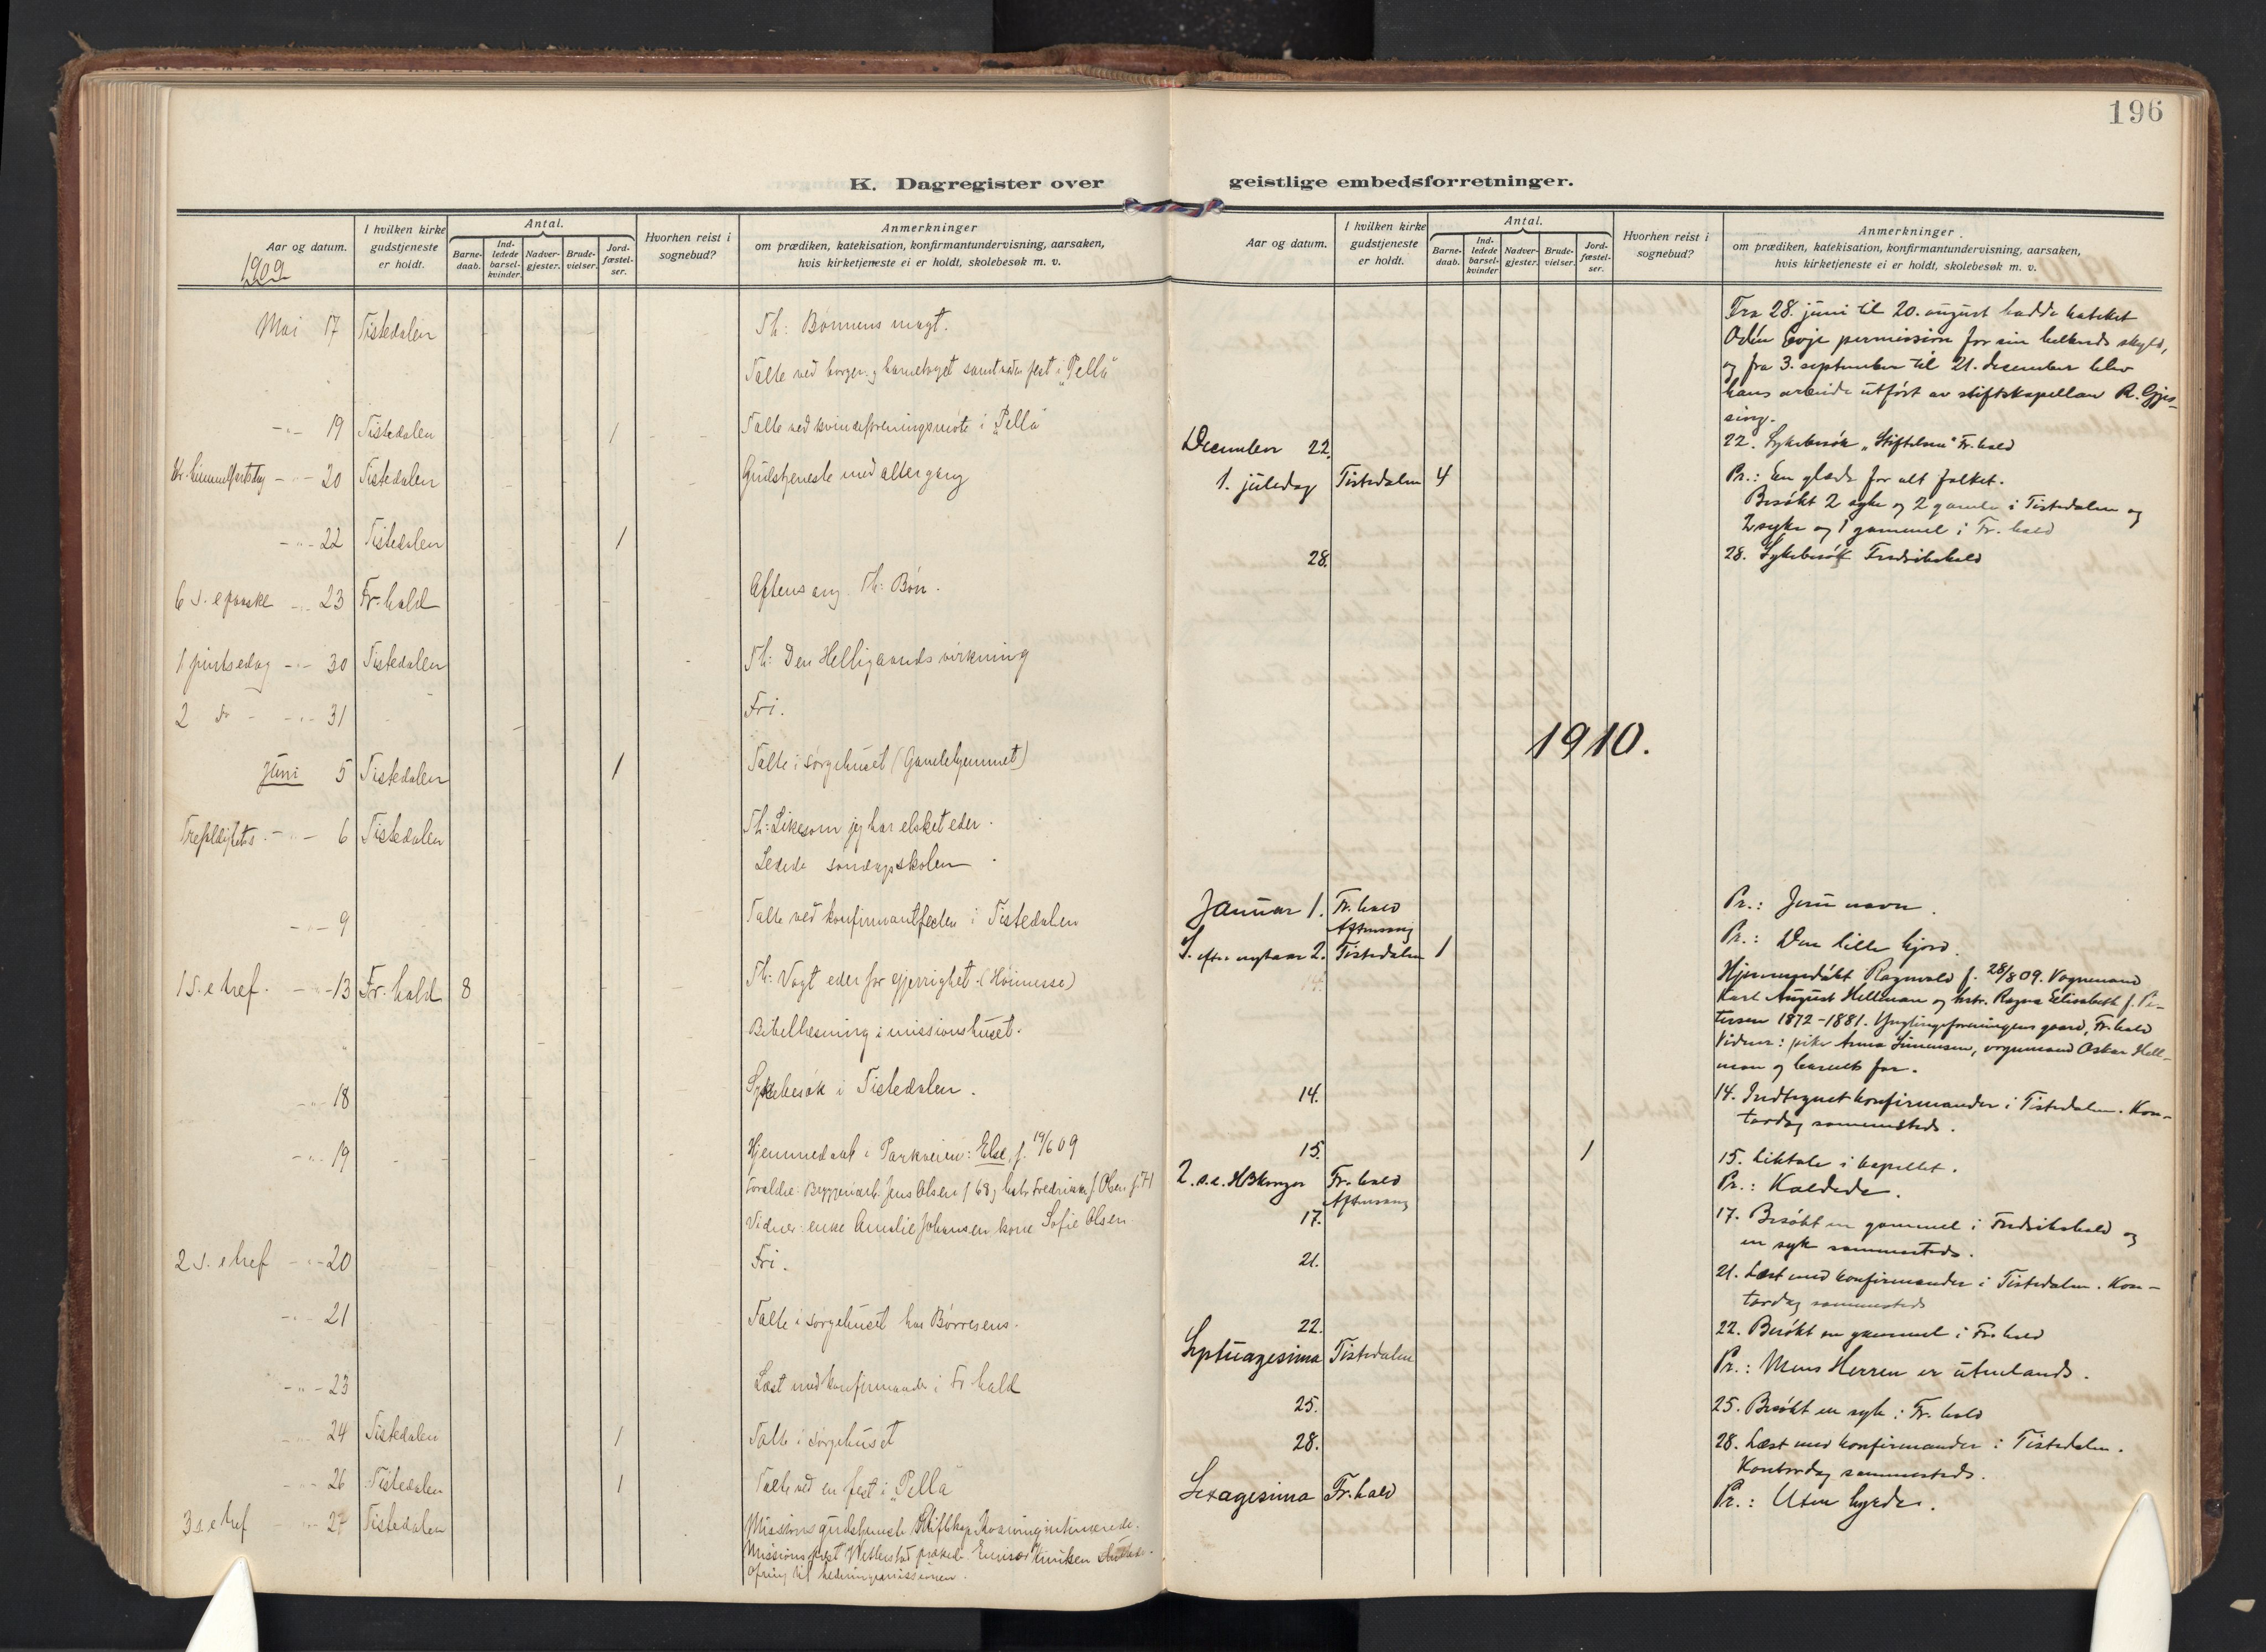 196
K. Dagregister over
geistlige embedsforretninger.
Aar og datum.
I hvilken kirke
gudstjeneste
er holdt.
Antal.
Barne-
daab.
Ind-
ledede
barsel-
kvinder.
Nadver-
gjester.
Brude-
vielser.
Jord-
fæstel-
ser.
Hvorhen reist i
sognebud?
Anmerkninger
om prædiken, katekisation, konfirmantundervisning, aarsaken,
hvis kirketjeneste ei er holdt, skolebesøk m. v.
1909
Mai 17 Tistedalen Th: Bønnens magt.
Talte ved borger- og barnetoget samt ved fest i "Pella"
-"- 19 Tistedalen 1 Talte ved kvindeforeningsmøte i "Pella"
Kr. himmelfartsdag -"- 20 Tistedalen Gudstjeneste med altergang
-"- 22 Tistedalen 1
6 s. e paaske -"- 23 Fr.hald Aftensang. Th: Bøn.
1 pintsedag -"- 30 Tistedalen Th: Den Helligaands virkning
2 do -"- 31 Fri.
Juni 5 Tistedalen 1 Talte i sørgehuset (Gamlehjemmet)
Trefoldighets. -"- 6 Tistedalen Th: Likesom jeg har elsket eder.
Ledede søndagsskolen
-"- 9 Talte ved konfirmantfesten i Tistedalen
1 s. e tref. -"- 13 Fr.hald 8 Th: Vogt eder for gjerrighet. (Høimesse)
" Bibellæsning i missionshuset.
-"- 18 Sykebesøk i Tistedalen.
-"- 19 Hjemmedaab i Parkveien: Else, f. 19/6 09
Forældre: Byggeriarb. Jens Olsen f 68 og hustr Fredrikke f Olsen f. 71
Vidner: enke Amalie Johansen, kone Sofie Olsen
2 s. e tref -"- 20 Fri.
-"- 21 Talte i sørgehuset hos Børresens.
-"- 23 Læst med konfirmander i Fr.hald
-"- 24 Tistedalen 1 Talte i sørgehuset
-"- 26 Tistedalen 1 Talte ved en fest i "Pella"
3 s. e tref -"- 27 Tistedalen Missionsgudstjeneste Stiftskap.
Missionsprest prækede. Emissær
Ofring til hedningemissionen.
Aar og datum.
I hvilken kirke
gudstjeneste
er holdt.
Antal.
Barne-
daab.
Ind-
ledede
barsel-
kvinder
Nadver-
gjester.
Brude-
vielser.
Jord-
fæstel-
ser.
Hvorhen reist i
sognebud?
Anmerkninger
om prædiken, katekisation, konfirmantundervisning, aarsaken,
hvis kirketjeneste ei er holdt, skolebesøk m. v.
Fra 28. juni til 20. august hadde kateket
Odén Evje permission for sin helbreds skyld,
og fra 3. september til 21. december blev
hans arbeide utført av stiftskapellan R. Gjes-
sing.
December 22. 22. Sykebesøk "Stiftelsen" Fr.hald
1. juledag Tistedalen 4 Pr.: En glæde for alt folket.
Besøkt 2 syke og 2 gamle i Tistedalen og
2 syke og 1 gammel i Fr.hald
28. 28. Sykebesøk Fredrikshald
1910.
Januar 1. Fr.hald Pr.: Jesu navn.
Aftensang
S. efter nytaar 2. Tistedalen 1 Pr.: Den lille hjord.
Hjemmedøbt Ragnvald f. 28/8 09. Vognmand
Karl August Hellman og hstr. Ragna Elisabeth f. Pe-
tersen 1872-1881. Ynglingeforeningens gaard, Fr.hald
Vidner: pike Anna Simensen, vognmand Oskar Hell-
man og barnets far.
14. 14. Indtegnet konfirmander i Tistedalen. Kon-
tordag sammesteds.
15. 1 15. Liktale i kapellet.
2. s. e. H3Konger Fr.hald Pr.: Kaldede.
Aftensang
17. 17. Besøkt en gammel i Fredrikshald og
en syk sammesteds.
21. 21. Læst med konfirmander i Tistedalen. Kon-
tordag sammesteds
22. 22. Besøkt en gammel i Fr.hald
Septuagesima Tistedalen Pr.: Mens Herren er utenlands.
25. 25. Besøkt en syk i Fr.hald
28. 28. Læst med konfirmander i Tistedalen.
Kontordag sammesteds.
Sexagesima Fr.hald Pr.: Uten hyrde.